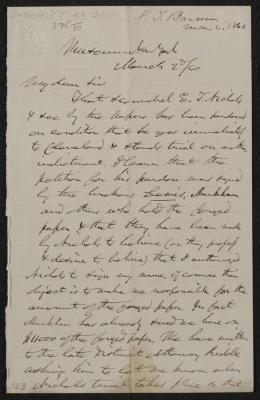 P. T. Barnum
Mar 2, 1860
Museum New York
March 2/60
My dear Sir
That scoundrel E. T. Nichols
I see by the papers has been pardoned
on condition that he goes immediately
to Cleveland & stands trial on another
indictment. I learn that the
petition for his pardon was signed
by the brokers Lewis, Markham
and others who hold the forged
paper & that they have been made
by Nichols to believe (or they profess
& desire to believe) that I authorized
Nichols to sign my name, of course their
object is to make me responsible for the
amount of the forged paper. In fact
Markham has already sued me here on
$11000 of the forged paper. We have written
to the late District Attorney Riddle
asking him to let me know when
Nichols' trial takes place in the
123